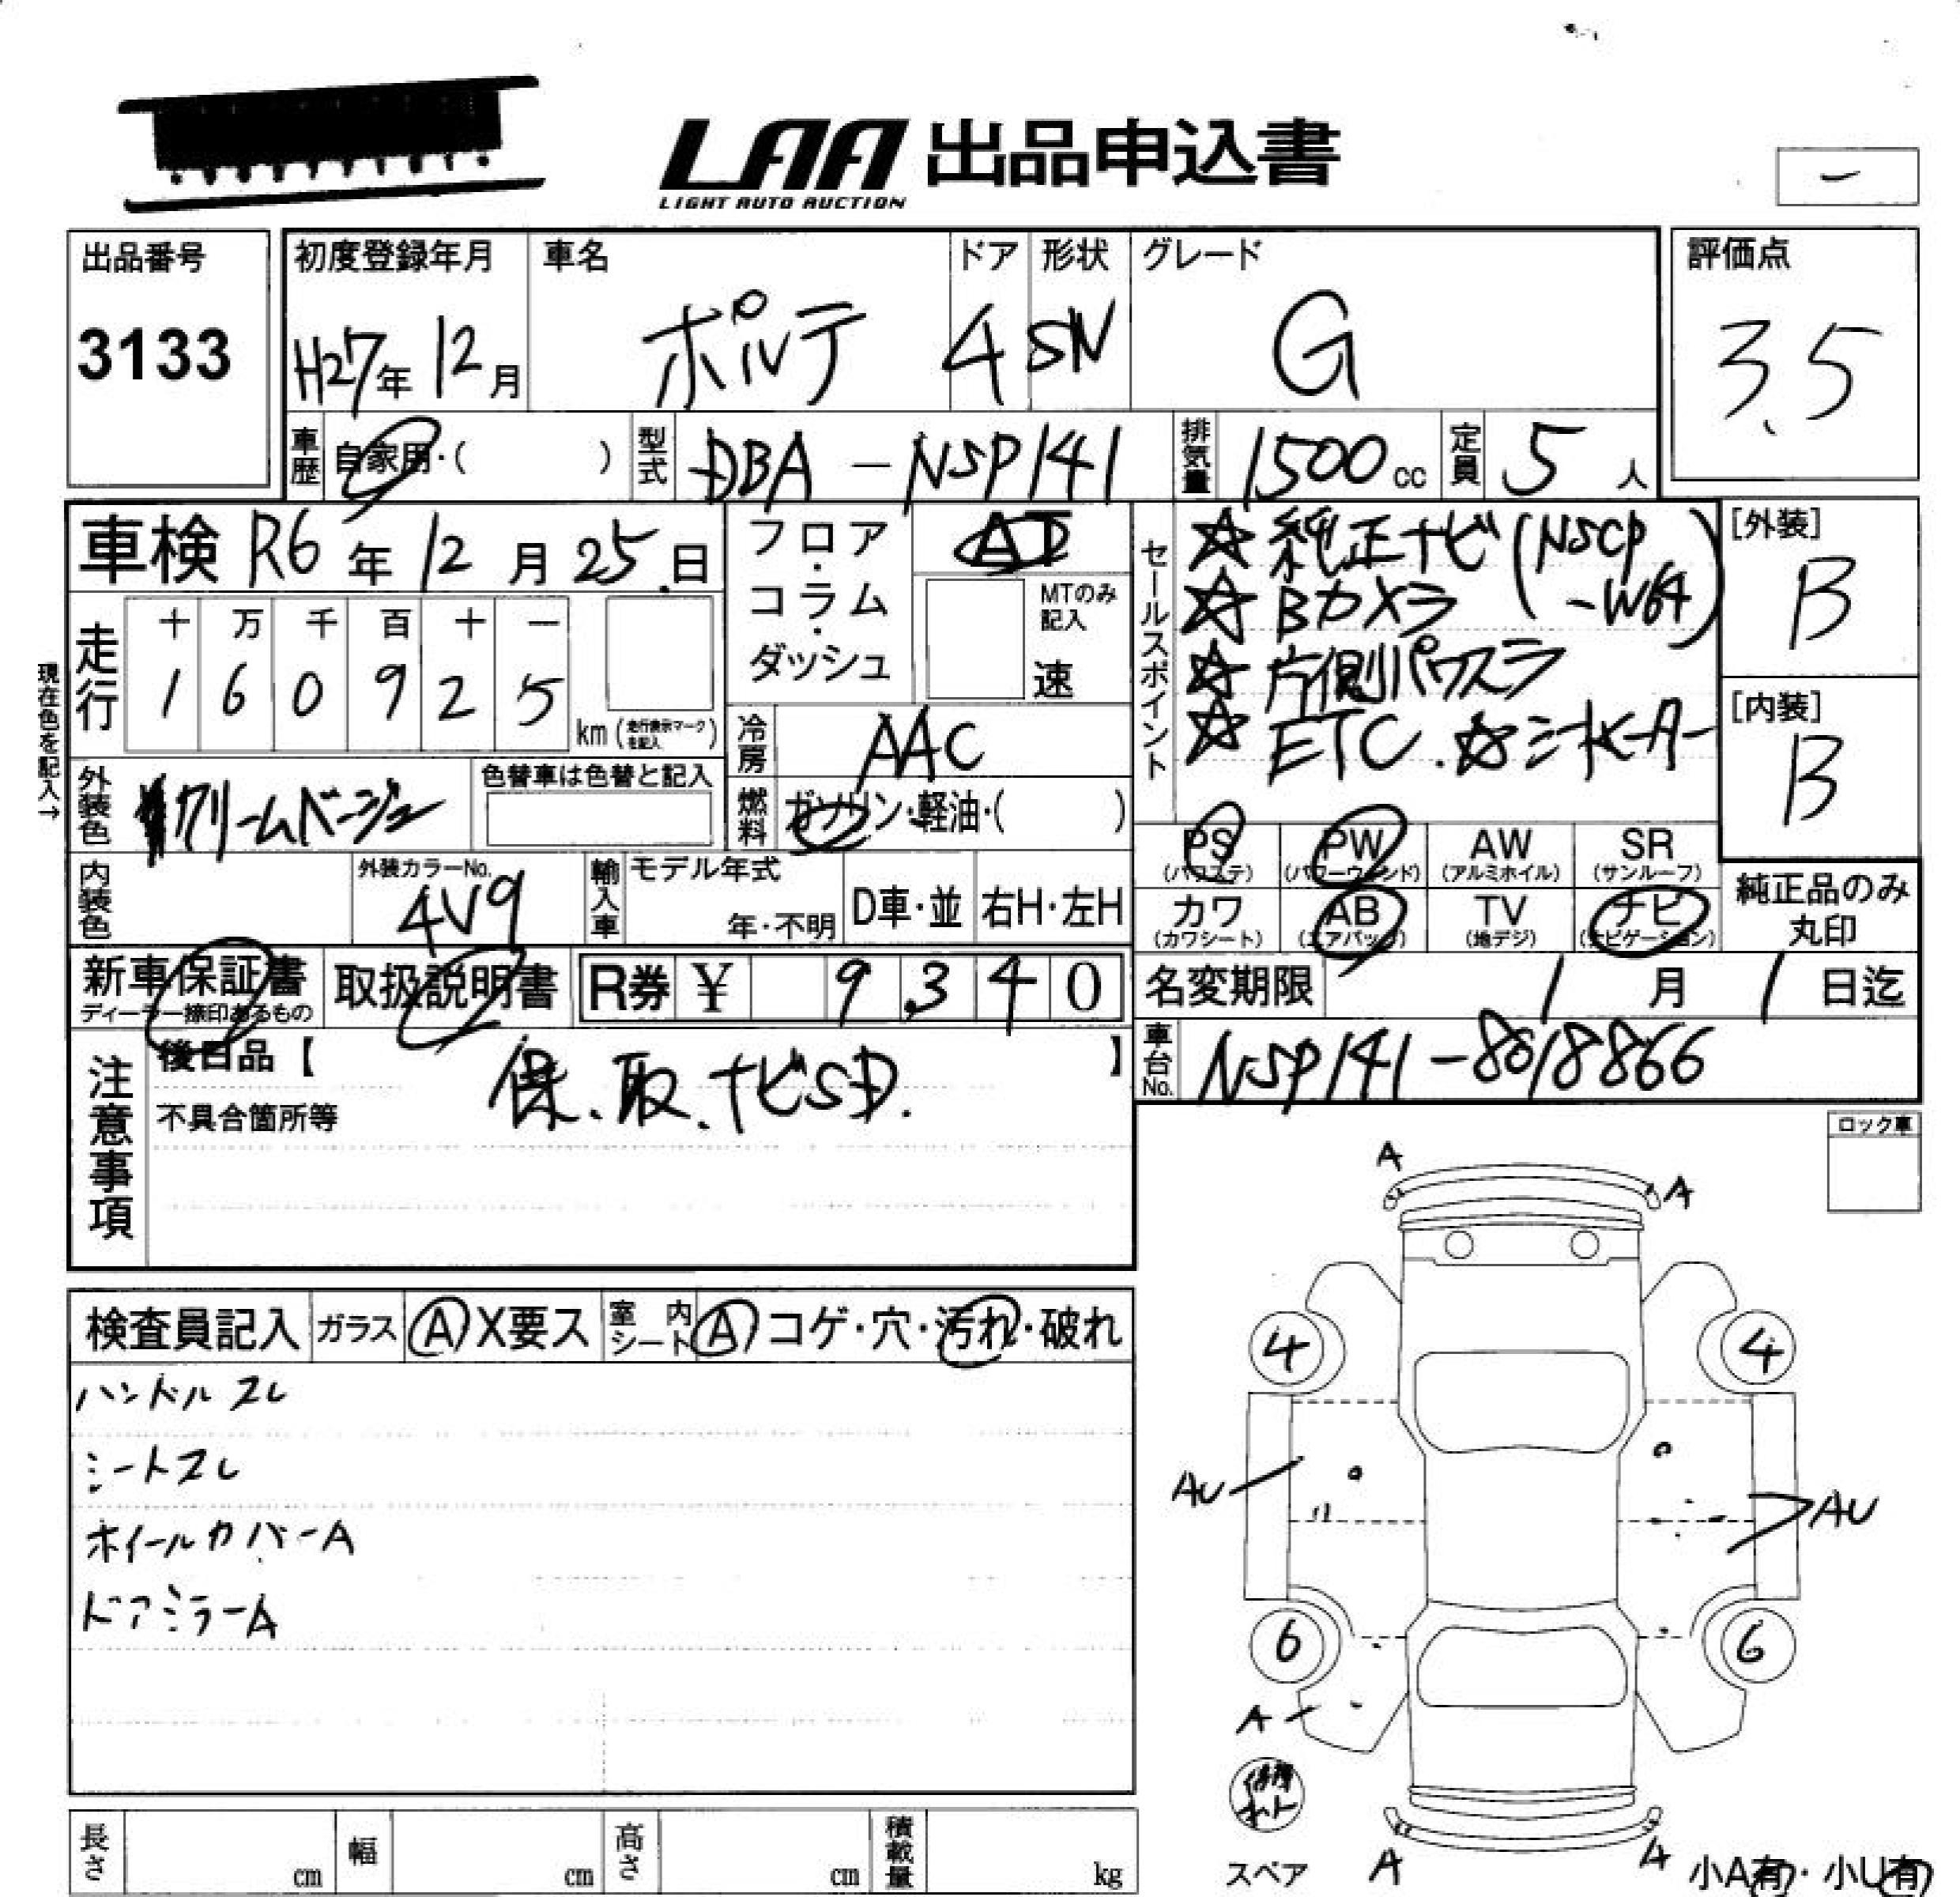 LAA 出品申込書
LIGHT AUTO AUCTION
-
出品番号
3133
初度登録年月
H27年 12月
車名
ポルテ
ドア
4
形状
SN
グレード
G
評価点
3.5
車歴 自家用・( )
型式 DBA - NSP141
排気量 1500 cc
定員 5 人
車検 R6 年 12 月 25 日
フロア・コラム・ダッシュ
AT
MTのみ記入
速
セールスポイント
☆ 純正ナビ (NSCP
☆ Bカメラ -W64)
☆ 片側パワスラ
☆ ETC. ☆ シートヒーター
[外装]
B
[内装]
B
現在色を記入→
走行
十 万 千 百 十 一
1 6 0 9 2 5
km (走行表示マークを記入)
冷房 AAC
外装色 クリームベージュ
色替車は色替と記入
燃料 ガソリン・軽油・( )
PS (パワステ)
PW (パワーウィンド)
AW (アルミホイル)
SR (サンルーフ)
カワ (カワシート)
AB (エアバッグ)
TV (地デジ)
ナビ (ナビゲーション)
純正品のみ丸印
内装色
外装カラーNo.
4V9
輸入車
モデル年式
年・不明
D車・並
右H・左H
新車保証書
ディーラー捺印あるもの
取扱説明書
R券 ¥ 9,340
名変期限 1 月 1 日迄
車台No. NSP141-8018866
注意事項
後日品【 保.取.ナビSD. 】
不具合箇所等
ロック車
検査員記入
ガラス A X要ス
室内シート A コゲ・穴・汚れ・破れ
ハンドルスレ
シートスレ
ホイールカバーA
ドアミラーA
A
A
4
4
AU
AU
6
6
A
A
A
スペア
小A有・小U有
長さ cm
幅 cm
高さ cm
積載量 kg